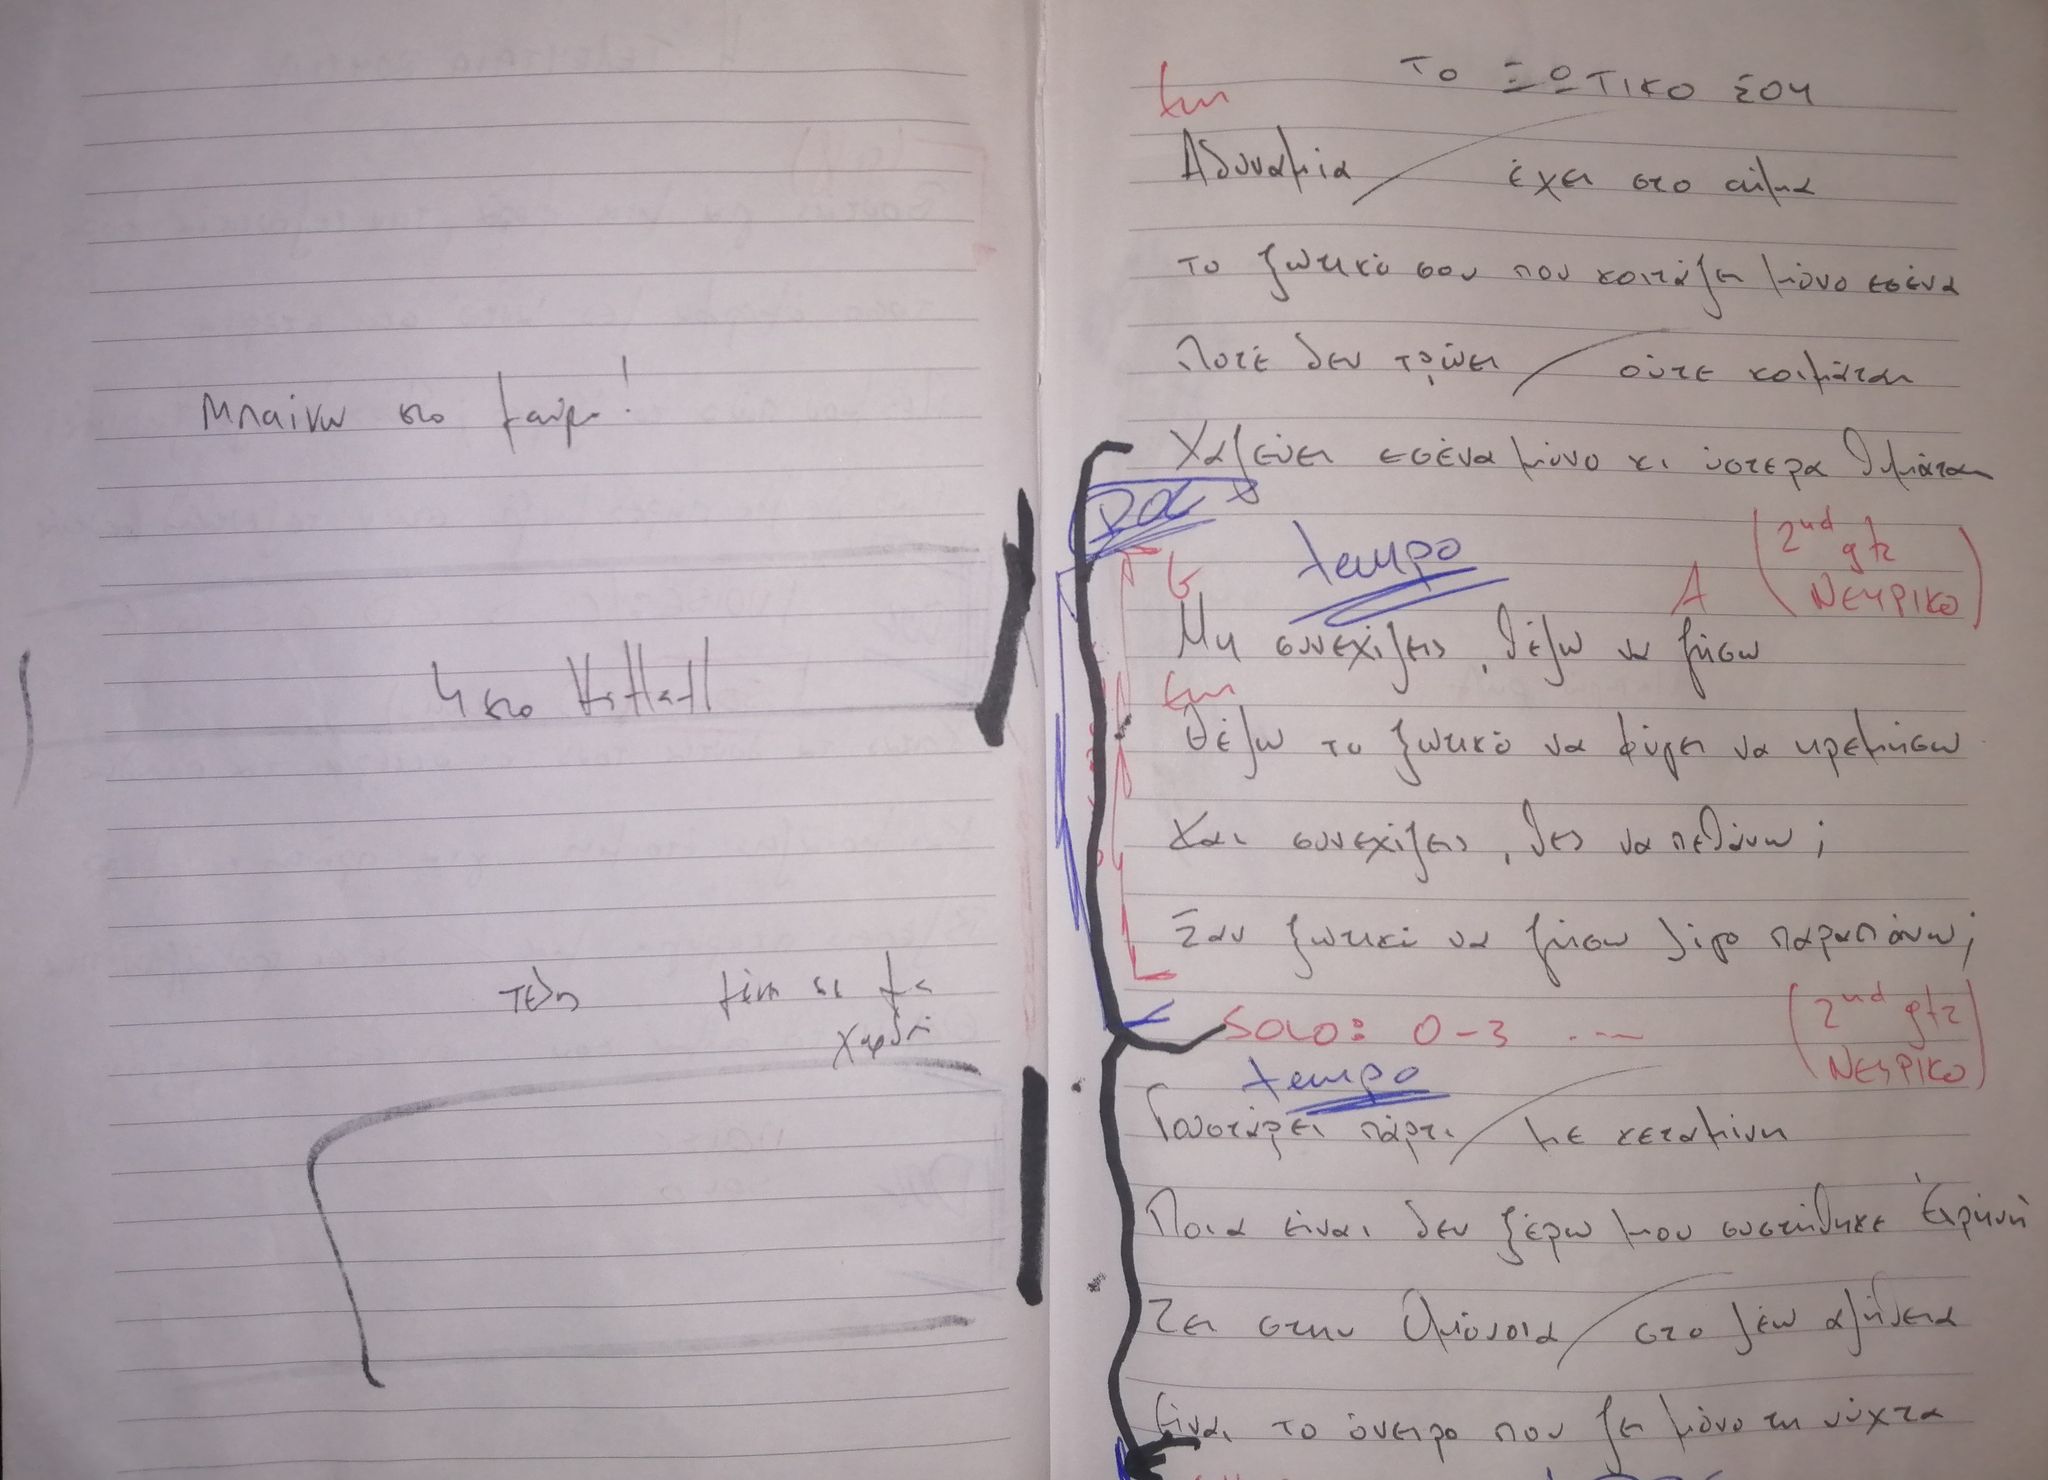 Μπαίνω στο
4 στο HiHat
τέλη
χαρδί
ΤΟ ΞΩΤΙΚΟ ΣΟΥ
Em
Αδυναμία / έχει στο αίμα
το ξωτικό σου που κοιτάζει μόνο εσένα
Ποτέ δεν τρώει / ούτε κοιμάται
Χαζεύει εσένα μόνο κι ύστερα θυμάται
tempo
(2nd gtr
G A ΝΕΥΡΙΚΟ)
Μη συνεχίζεις, θέλω να ζήσω
Em
Θέλω το ξωτικό να φύγει να ηρεμήσω
Και συνεχίζεις, θες να πεθάνω;
Σαν ξωτικό να ζήσω λίγο παραπάνω;
SOLO: 0-3 ... (2nd gtr
tempo ΝΕΥΡΙΚΟ)
Γουστάρει πάρτι / με κεταμίνη
Ποια είναι δεν ξέρω μου συστήθηκε Ειρήνη
Ζει στην Ομόνοια / στο λέω αλήθεια
Είναι το όνειρο που ζει μόνο τη νύχτα